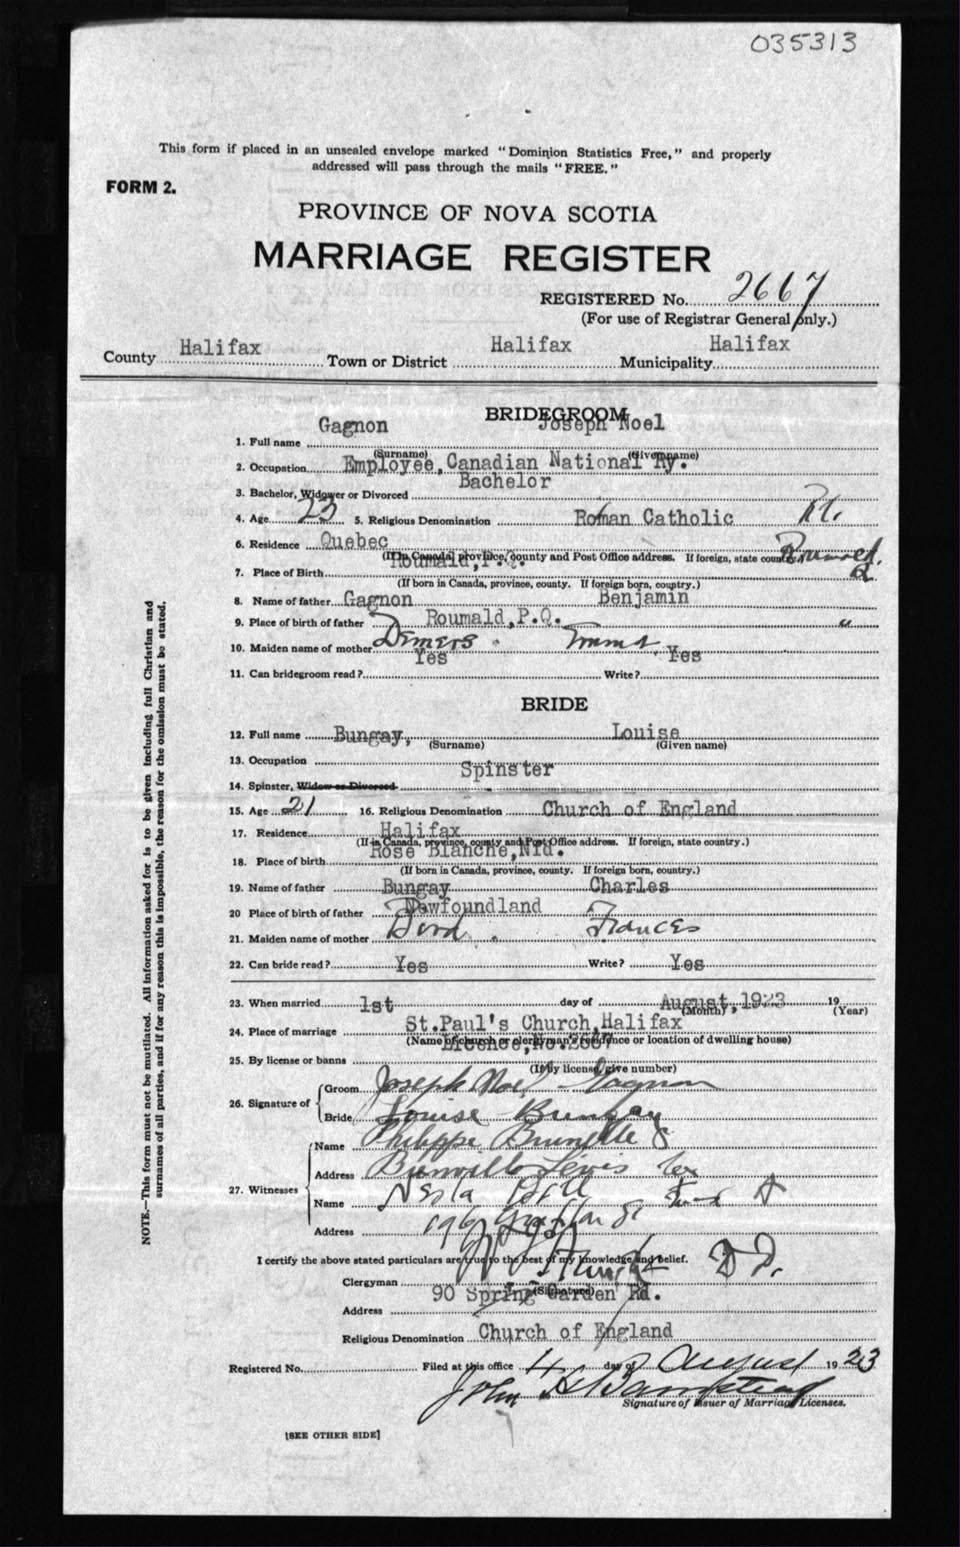 035313
This form if placed in an unsealed envelope marked "Dominion Statistics Free," and properly
addressed will pass through the mails "FREE."
FORM 2.
PROVINCE OF NOVA SCOTIA
MARRIAGE REGISTER
REGISTERED No. 2667
(For use of Registrar General only.)
County Halifax Town or District Halifax Municipality Halifax
BRIDEGROOM
1. Full name Gagnon Joseph Noel
(Surname) (Given name)
2. Occupation Employee, Canadian National Ry.
3. Bachelor, Widower or Divorced Bachelor
4. Age 23 5. Religious Denomination Roman Catholic
6. Residence Quebec
(If in Canada, province, county and Post Office address. If foreign, state country.)
7. Place of Birth Roumald, P.Q.
(If born in Canada, province, county. If foreign born, country.)
8. Name of father Gagnon Benjamin
9. Place of birth of father Roumald, P.Q. "
10. Maiden name of mother Demers Emma
11. Can bridegroom read? Yes Write? Yes
BRIDE
12. Full name Bungay, Louise
(Surname) (Given name)
13. Occupation
14. Spinster, Widow or Divorced Spinster
15. Age 21 16. Religious Denomination Church of England
17. Residence Halifax
(If in Canada, province, county and Post Office address. If foreign, state country.)
18. Place of birth Rose Blanche, Nfd.
(If born in Canada, province, county. If foreign born, country.)
19. Name of father Bungay Charles
20 Place of birth of father Newfoundland
21. Maiden name of mother Frances
22. Can bride read? Yes Write? Yes
23. When married 1st day of August, 1923 19
(Month) (Year)
24. Place of marriage St.Paul's Church, Halifax
(Name of church or clergyman's residence or location of dwelling house)
25. By license or banns Licence, No.
(If by license, give number)
26. Signature of Groom Joseph Noel Gagnon
Bride Louise Bungay
27. Witnesses Name Philippe Brunelle
Address
Name
Address
I certify the above stated particulars are true to the best of my knowledge and belief.
Clergyman
(Signature)
Address 90 Spring Garden Rd.
Religious Denomination Church of England
Registered No. Filed at this office 4 day of August 1923
John
Signature of Issuer of Marriage Licenses.
[SEE OTHER SIDE]
NOTE.—This form must not be mutilated. All information asked for is to be given including full Christian and
surnames of all parties, and if for any reason this is impossible, the reason for the omission must be stated.